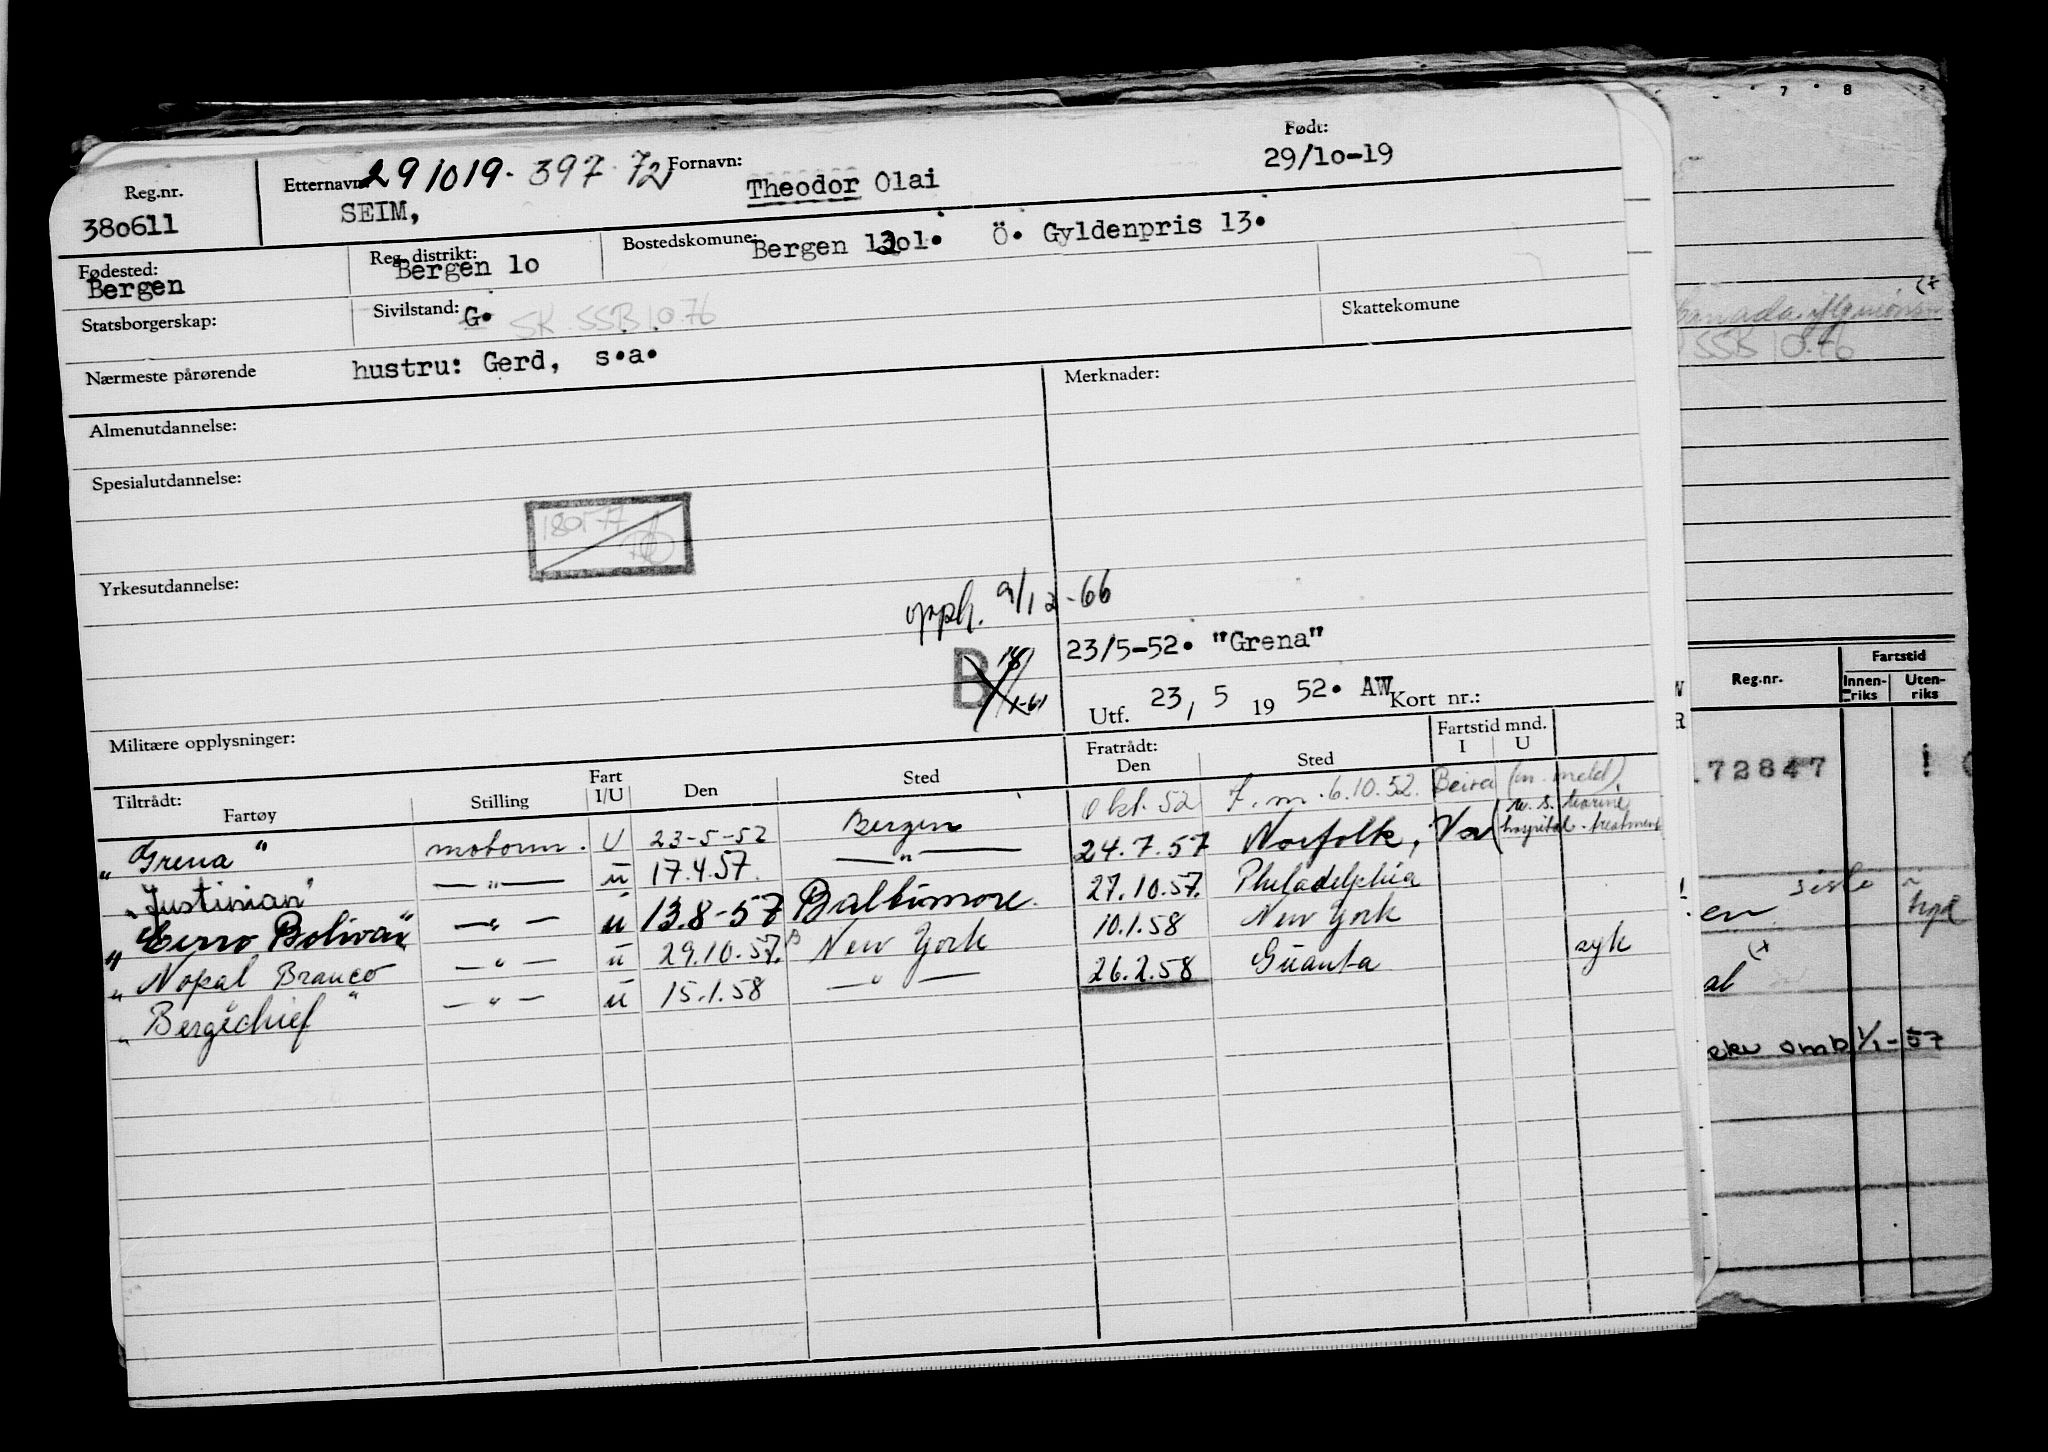 Reg.nr. Etternavn: 291019. 397 72 Fornavn: Født:
380611 SEIM, Theodor Olai 29/10-19
Fødested: Reg. distrikt: Bostedskomune:
Bergen Bergen 10 Bergen 1301. Ö. Gyldenpris 13.
Statsborgerskap: Sivilstand: G. SK. SSB 10.76 Skattekomune
Nærmeste pårørende hustru: Gerd, s.a.
Almenutdannelse: Merknader:
Spesialutdannelse:
Yrkesutdannelse:
opph. 9/12-66
23/5-52. "Grena"
B
Utf. 23, 5 19 52. AW Kort nr.:
Militære opplysninger:
Tiltrådt: Fratrådt: Fartstid mnd.
Fartøy Stilling Fart I/U Den Sted Den Sted I U
"Grena" motorm. U 23-5-52 Bergen okt. 52 F.m. 6.10.52. Beira (m. meld)
"Justinian" —"— u 17.4.57. —"— 24.7.57 Norfolk, Va (u.s. marine hospital. treatment
"Cerro Bolivar" —"— u 13.8-57 Baltimore 27.10.57. Philadelphia
"Nopal Branco —"— u 29.10.57. New York 10.1.58 New York
"Bergechief" —"— u 15.1.58 —"— 26.2.58 Guanta syk
7 8
SSB 10.76
Reg.nr. Fartstid
Innenriks Utenriks
172847
siste
en
1/1-57